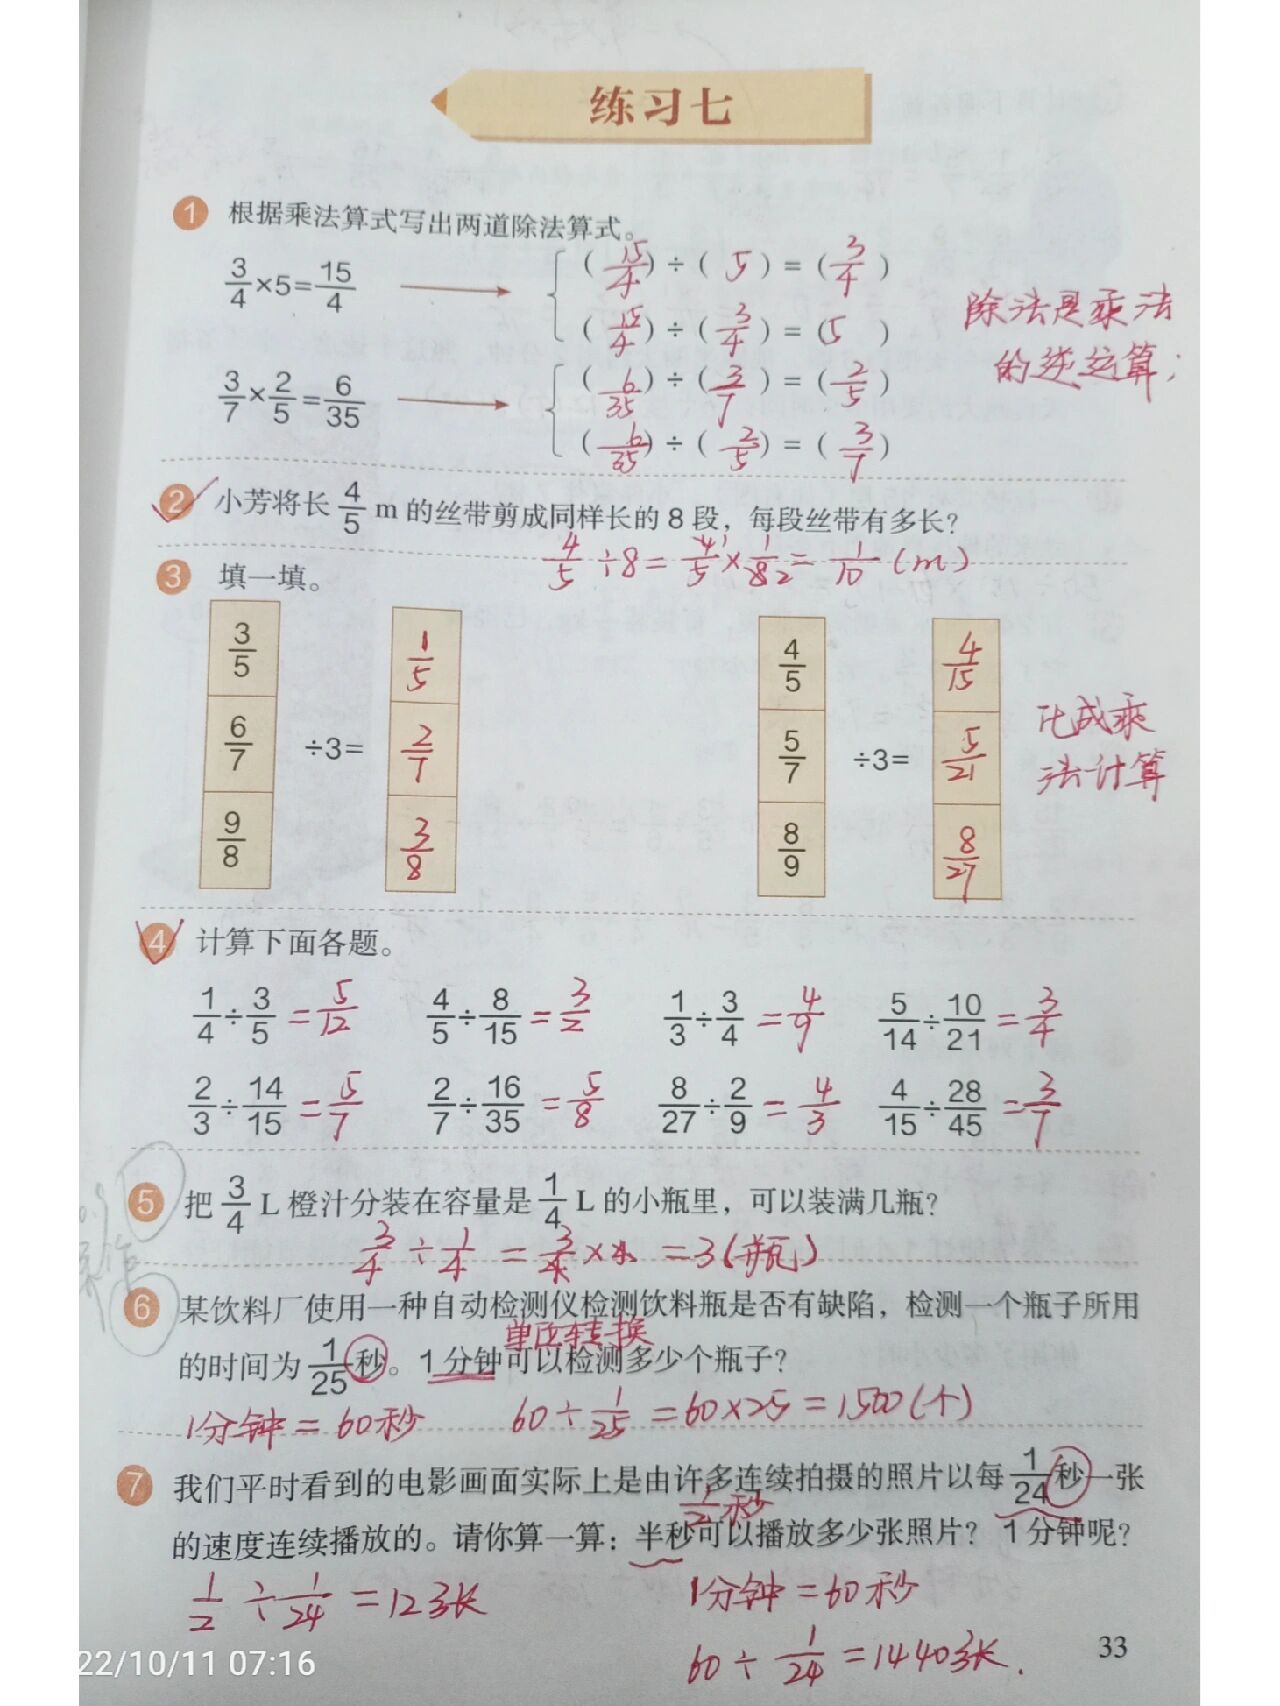 练习七
1 根据乘法算式写出两道除法算式。
3/4×5=15/4 → (15/4)÷(5)=(3/4)
(15/4)÷(3/4)=(5)
除法是乘法
的逆运算;
3/7×2/5=6/35 → (6/35)÷(3/7)=(2/5)
(6/35)÷(2/5)=(3/7)
2 小芳将长4/5 m的丝带剪成同样长的8段，每段丝带有多长?
4/5÷8=4/5×1/8=1/10(m)
3 填一填。
3/5 1/5 4/5 4/15
6/7 ÷3= 2/7 5/7 ÷3= 5/21
9/8 3/8 8/9 8/27
化成乘
法计算
4 计算下面各题。
1/4÷3/5=5/12 4/5÷8/15=3/2 1/3÷3/4=4/9 5/14÷10/21=3/4
2/3÷14/15=5/7 2/7÷16/35=5/8 8/27÷2/9=4/3 4/15÷28/45=3/7
5 把3/4 L橙汁分装在容量是1/4 L的小瓶里，可以装满几瓶?
3/4÷1/4=3/4×4=3(瓶)
6 某饮料厂使用一种自动检测仪检测饮料瓶是否有缺陷，检测一个瓶子所用
单位转换
的时间为1/25秒。1分钟可以检测多少个瓶子?
1分钟=60秒 60÷1/25=60×25=1500(个)
7 我们平时看到的电影画面实际上是由许多连续拍摄的照片以每1/24秒一张
1/2秒
的速度连续播放的。请你算一算：半秒可以播放多少张照片? 1分钟呢?
1/2÷1/24=12张 1分钟=60秒
60÷1/24=1440张.
33
22/10/11 07:16